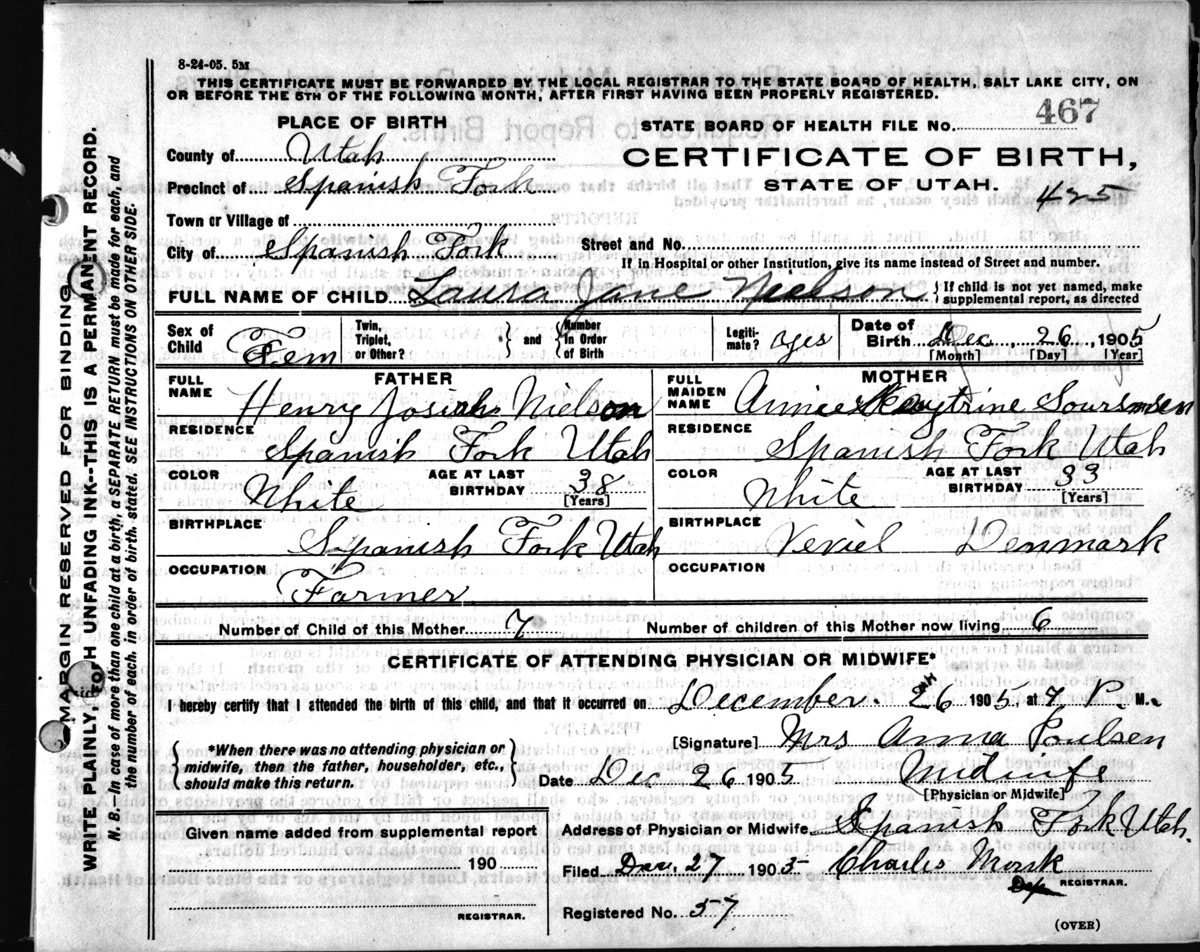 8-24-05. 5M
THIS CERTIFICATE MUST BE FORWARDED BY THE LOCAL REGISTRAR TO THE STATE BOARD OF HEALTH, SALT LAKE CITY, ON
OR BEFORE THE 5TH OF THE FOLLOWING MONTH, AFTER FIRST HAVING BEEN PROPERLY REGISTERED.
PLACE OF BIRTH
STATE BOARD OF HEALTH FILE No. 467
County of Utah
CERTIFICATE OF BIRTH,
Precinct of Spanish Fork
STATE OF UTAH. 425
Town or Village of
City of Spanish Fork Street and No.
If in Hospital or other Institution, give its name instead of Street and number.
FULL NAME OF CHILD Laura Jane Nielson } If child is not yet named, make
supplemental report, as directed
Sex of Child Fem Twin, Triplet, or Other? } and { Number in Order of Birth Legiti-mate? Date of Birth Dec, 26, 1905
[Month] [Day] [Year]
FATHER MOTHER
FULL NAME Henry Josiah Nielson FULL MAIDEN NAME Annie
RESIDENCE Spanish Fork Utah RESIDENCE Spanish Fork Utah
COLOR White AGE AT LAST BIRTHDAY 38 [Years] COLOR White AGE AT LAST BIRTHDAY 33 [Years]
BIRTHPLACE Spanish Fork Utah BIRTHPLACE Denmark
OCCUPATION Farmer OCCUPATION
Number of Child of this Mother 7 Number of children of this Mother now living 6
CERTIFICATE OF ATTENDING PHYSICIAN OR MIDWIFE*
I hereby certify that I attended the birth of this child, and that it occurred on December. 26 1905, at 7 P. M.
{ *When there was no attending physician or
midwife, then the father, householder, etc.,
should make this return. }
[Signature] Mrs Anna Poulsen
Date Dec 26 1905 Midwife
[Physician or Midwife]
Given name added from supplemental report
Address of Physician or Midwife Spanish Fork Utah
190
Filed Dec, 27 1905 Charles Monk
Dep REGISTRAR.
REGISTRAR.
Registered No. 57
(OVER)
MARGIN RESERVED FOR BINDING.
WRITE PLAINLY, WITH UNFADING INK--THIS IS A PERMANENT RECORD.
N. B.—In case of more than one child at a birth, a SEPARATE RETURN must be made for each, and
the number of each, in order of birth, stated. SEE INSTRUCTIONS ON OTHER SIDE.